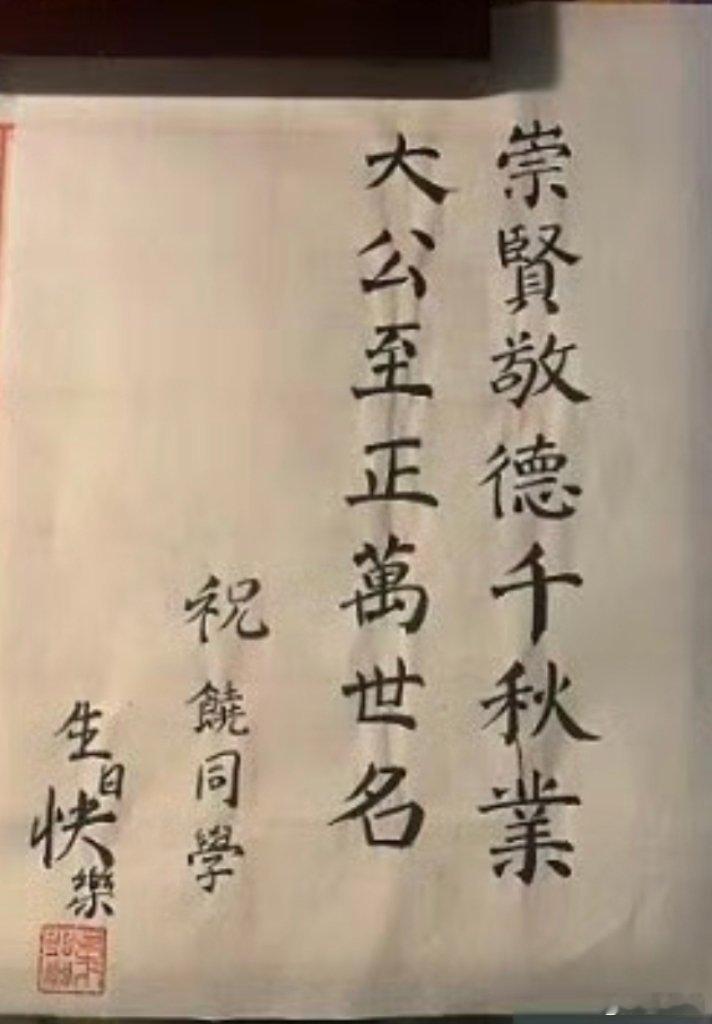 崇賢敬德千秋業
大公至正萬世名
祝饒同學
生日快樂